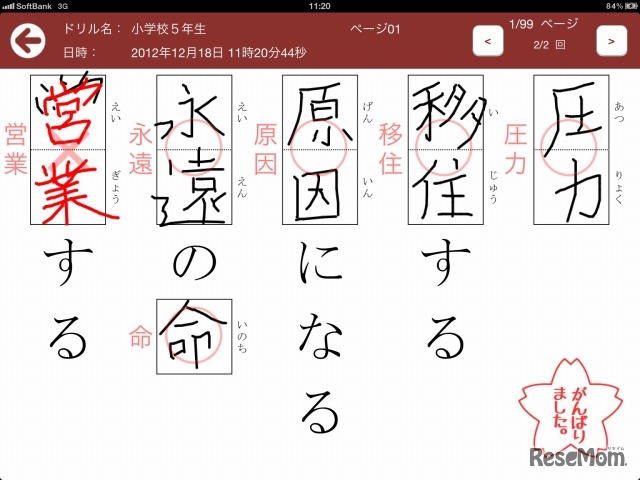 SoftBank 3G 11:20 84%
ドリル名： 小学校５年生 ページ01 1/99 ページ
日時： 2012年12月18日 11時20分44秒 < 2/2 回 >
圧力 圧力 あつ りょく
移住 移住する い じゅう
原因 原因になる げん いん
永遠 永遠の えい えん
命 命 いのち
営業 営業する えい ぎょう
がんばり
ました。
リセマム
ReseMom.